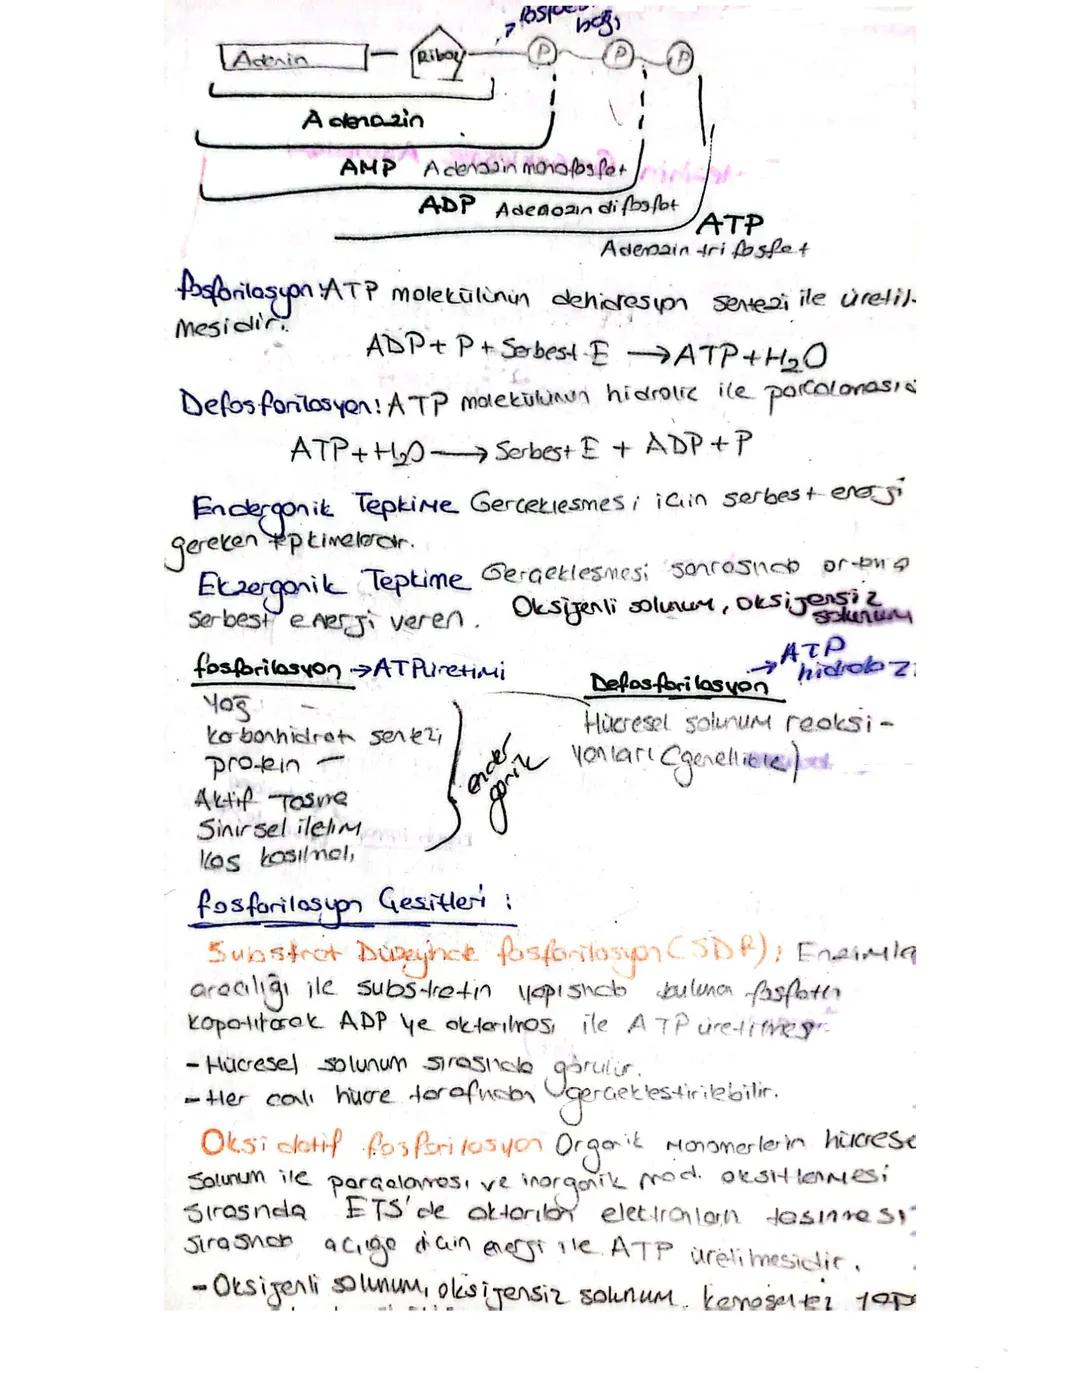 bağı
Adenin Riboz P P P
Adenozin
AMP Adenozin monofosfat
ADP Adenozin difosfat
ATP
Adenozin tri fosfat
fosforilasyon: ATP molekülünün dehidrasyon sentezi ile üretil-
mesidir.
ADP + P + Serbest E → ATP + H₂O
Defosforilasyon: ATP molekülünün hidroliz ile parçalanası
ATP + H₂O → Serbest E + ADP + P
Endergonik Tepkime Gerçekleşmesi için serbest enerji
gereken tepkimelerdir.
Ekzergonik Tepkime Gerçekleşmesi sonrasında
serbest enerji veren. Oksijenli solunum, oksijensiz
solunum
fosforilasyon → ATP üretimi
Defosforilasyon → ATP
hidroliz
Yağ -
Karbonhidrat sentezi
protein -
Aktif Taşıma
Sinirsel iletim
Kas kasılması
ender
gonik
Hücresel solunum reaksi-
yonları (genellikle)
fosforilasyon Çeşitleri :
Substrat Düzeyinde fosforilasyon (SDF): Enzimle
aracılığı ile substratın yapısında bulunan fosfatın
kopartılarak ADP ye aktarılması ile ATP üretilmesi
- Hücresel solunum sırasında görülür.
- Her canlı hücre tarafından gerçekleştirilebilir.
Oksidatif fosforilasyon Organik Monomerlerin hücrese
solunum ile parçalanması ve inorganik mad. oksitlenmesi
sırasında ETS'de aktarılan elektronların taşınması
sırasında açığa çıkan enerji ile ATP üretilmesidir.
- Oksijenli solunum, oksijensiz solunum, kemosentez yap